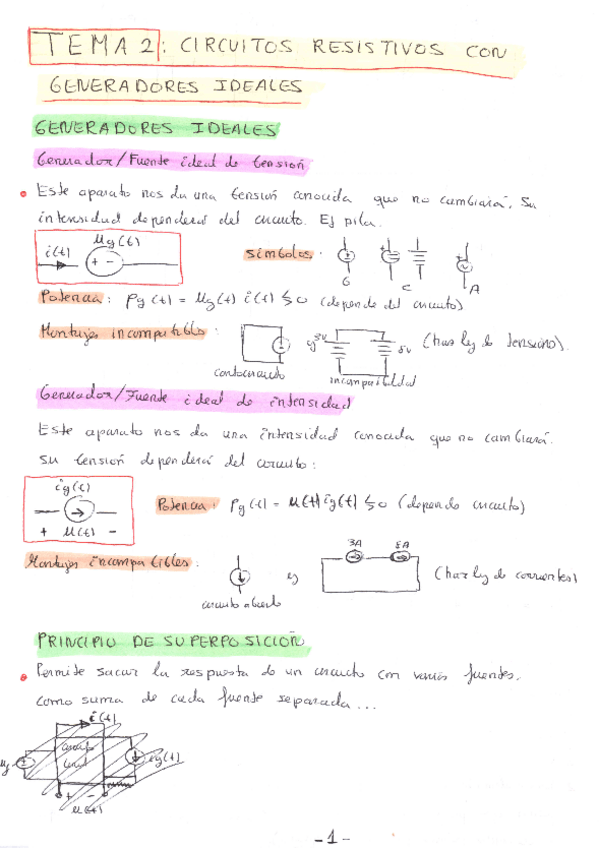 TEMA 2: CIRCUITOS RESISTIVOS CON
GENERADORES IDEALES
GENERADORES IDEALES
Generador/Fuente ideal de tensión
Este aparato nos da una tensión conocida que no cambiará. Su
intensidad dependerá del circuito. Ej pila.
i(t) Ug(t)
+ -
Símbolos:
G C A
Potencia: Pg(t) = Ug(t) i(t) ≶ 0 (depende del circuito)
Montajes incompatibles:
cortocircuito
incompatibilidad
(haz ley de tensiones).
Generador/Fuente ideal de intensidad
Este aparato nos da una intensidad conocida que no cambiará.
Su tensión dependerá del circuito:
ig(t)
+ U(t) -
Potencia: Pg(t) = U(t) ig(t) ≶ 0 (depende circuito)
Montajes incompatibles:
circuito abierto
ej
3A 8A
(haz ley de corrientes)
PRINCIPIO DE SUPERPOSICIÓN
Permite sacar la respuesta de un circuito con varias fuentes,
como suma de cada fuente separada...
i(t)
ig(t)
+ -
U(t)
-1-